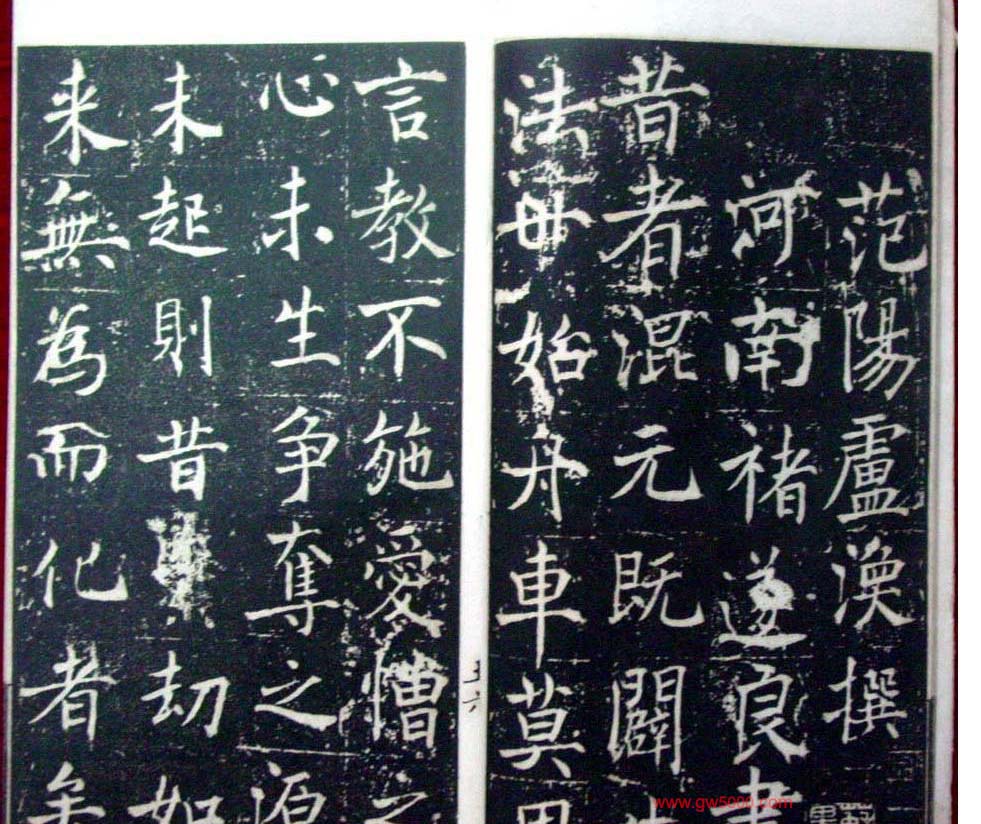 范陽盧渙撰
河南褚遂良書
昔者混元既闢
法毋始舟車莫
言教不施愛憎之
心未生争奪之源
未起則昔劫如
来無為而化者
五六
www.gw5000.com